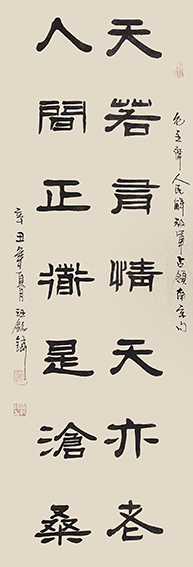 毛主席人民解放军占领南京句
天若有情天亦老
人间正道是沧桑
辛丑年夏月汪